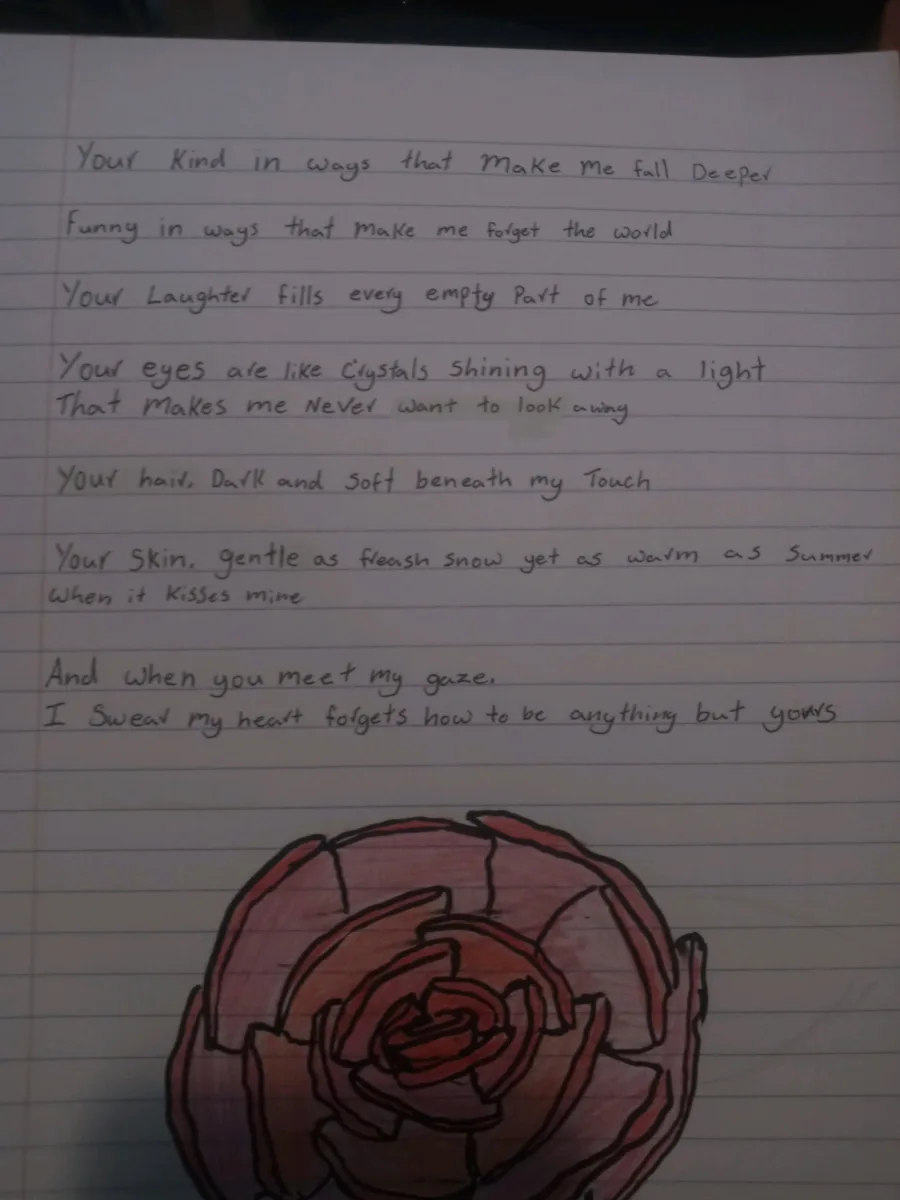 Your Kind in ways that Make Me fall Deeper
Funny in ways that Make me forget the world
Your Laughter fills every empty Part of me
Your eyes are like Crystals Shining with a light
That Makes me Never want to look away
Your hair. Dark and Soft beneath my Touch
Your Skin. gentle as freash Snow yet as warm as Summer
When it Kisses mine
And when you meet my gaze.
I Swear my heart forgets how to be anything but yours